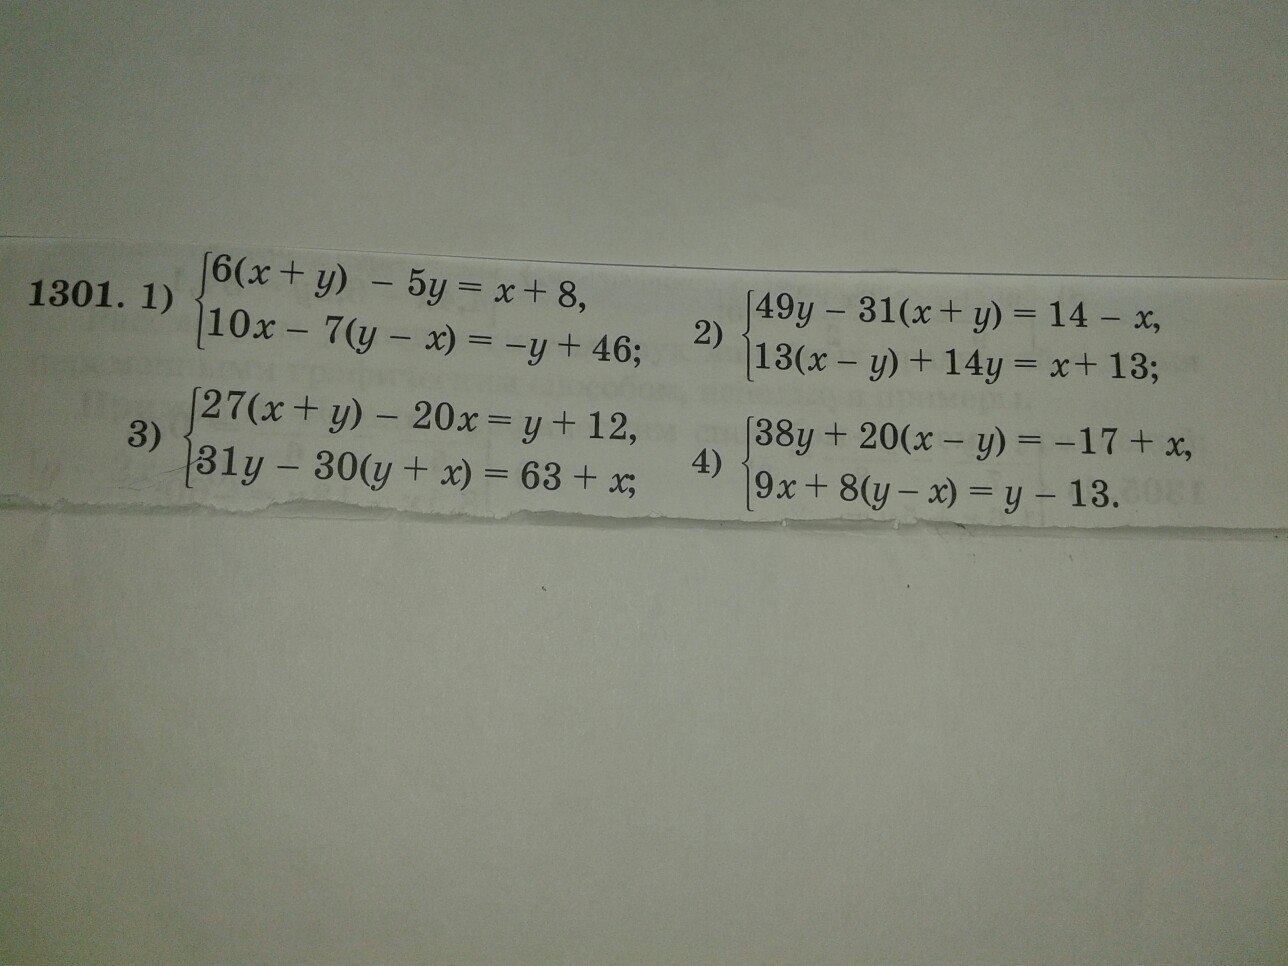 1301. 1) {6(x + y) – 5y = x + 8,
10x – 7(y – x) = –y + 46;
2) {49y – 31(x + y) = 14 – x,
13(x – y) + 14y = x + 13;
3) {27(x + y) – 20x = y + 12,
31y – 30(y + x) = 63 + x;
4) {38y + 20(x – y) = –17 + x,
9x + 8(y – x) = y – 13.